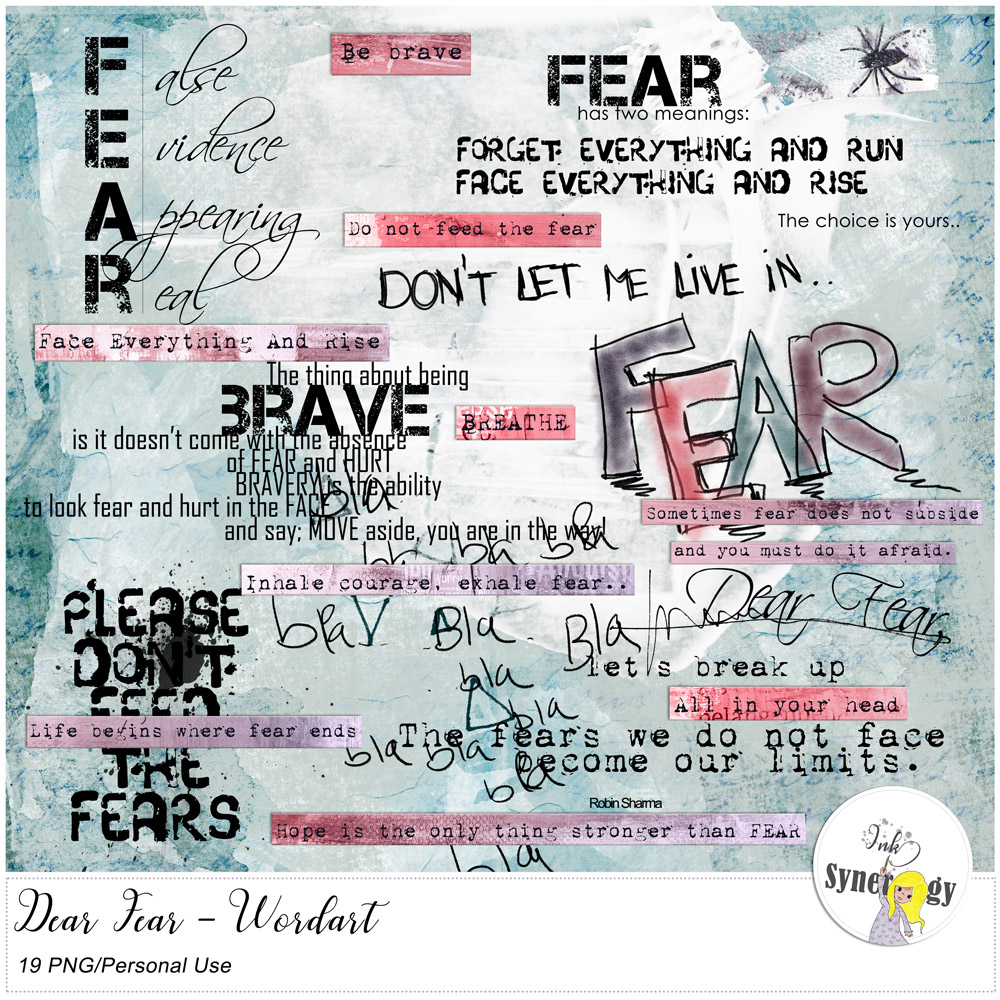 FEAR
False
Evidence
Appearing
Real
Be brave
FEAR
has two meanings:
FORGET EVERYTHING AND RUN
FACE EVERYTHING AND RISE
The choice is yours..
Do not feed the fear
DON'T LET ME LIVE IN..
FEAR
Face Everything And Rise
The thing about being
BRAVE
is it doesn't come with the absence
of FEAR and HURT
BRAVERY is the ability
to look fear and hurt in the FACE
and say; MOVE aside, you are in the way!
BREATHE
Sometimes fear does not subside
and you must do it afraid.
bla
bla bla bla
Inhale courage, exhale fear..
bla Bla Bla
Dear Fear,
let's break up
PLEASE
DON'T
FEED
THE
FEARS
bla
bla
All in your head
Life begins where fear ends
bla bla
bla
The fears we do not face
become our limits.
Robin Sharma
Hope is the only thing stronger than FEAR
bla
Ink
Synergy
Dear Fear - Wordart
19 PNG/Personal Use